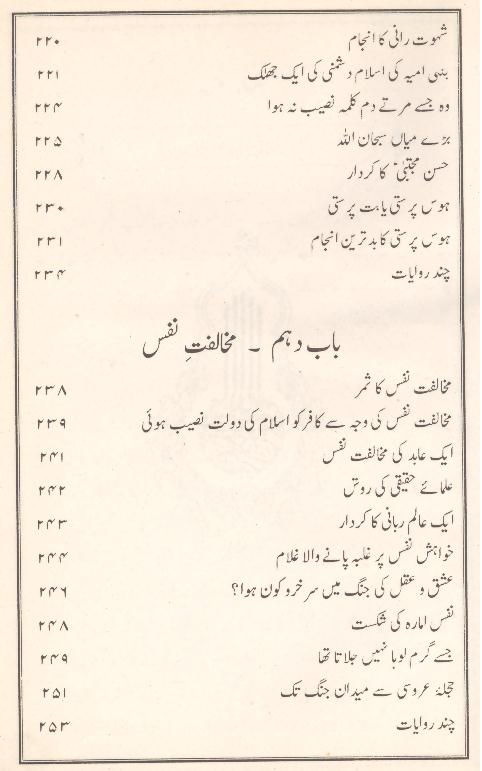 شہوت رانی کا انجام ۲۲۰
بنی امیہ کی اسلام دشمنی کی ایک جھلک ۲۲۱
وہ جسے مرتے دم کلمہ نصیب نہ ہوا ۲۲۴
بڑے میاں سبحان اللہ ۲۲۵
حسن مجتبیٰؑ کا کردار ۲۲۸
ہوس پرستی یا بت پرستی ۲۳۰
ہوس پرستی کا بدترین انجام ۲۳۱
چند روایات ۲۳۴
باب دہم ۔ مخالفتِ نفس
مخالفت نفس کا ثمر ۲۳۸
مخالفت نفس کی وجہ سے کافر کو اسلام کی دولت نصیب ہوئی ۲۳۹
ایک عابد کی مخالفت نفس ۲۴۱
علمائے حقیقی کی روش ۲۴۲
ایک عالم ربانی کا کردار ۲۴۳
خواہش نفس پر غلبہ پانے والا غلام ۲۴۴
عشق و عقل کی جنگ میں سرخرو کون ہوا؟ ۲۴۶
نفس امارہ کی شکست ۲۴۸
جسے گرم لوہا نہیں جلاتا تھا ۲۴۹
حجلۂ عروسی سے میدان جنگ تک ۲۵۱
چند روایات ۲۵۳